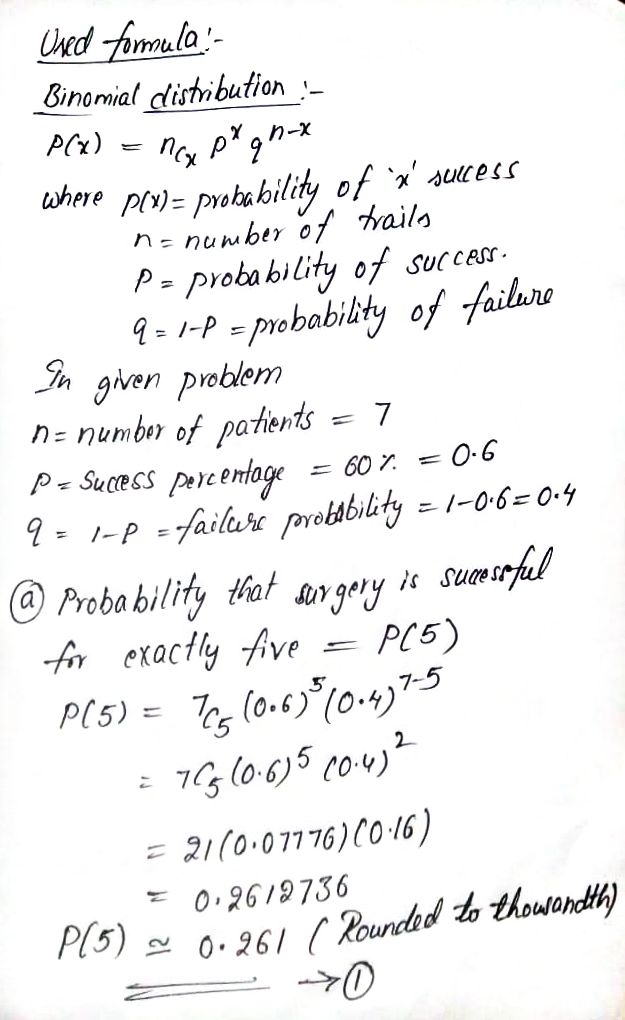 Used formula:-
Binomial distribution :-
P(x) = nCx p^x q^n-x
where p(x) = probability of 'x' success
n = number of trails
P = probability of success.
q = 1-P = probability of failure
In given problem
n = number of patients = 7
p = Success percentage = 60 % = 0.6
q = 1-P = failure probability = 1-0.6 = 0.4
ⓐ Probability that surgery is sucessful
for exactly five = P(5)
P(5) = 7C5 (0.6)^5 (0.4)^7-5
= 7C5 (0.6)^5 (0.4)^2
= 21(0.07776)(0.16)
= 0.2612736
P(5) ≃ 0.261 (Rounded to thousandth)
→ ①